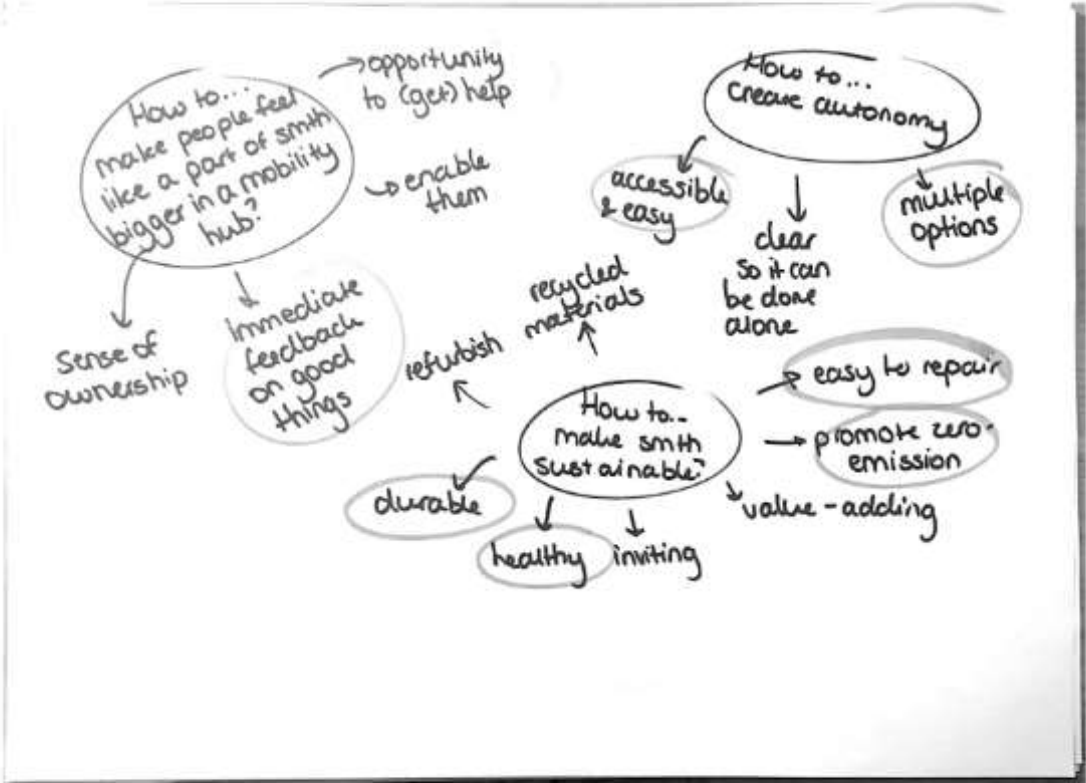 How to...
make people feel
like a part of smth
bigger in a mobility
hub?
opportunity
to (get) help
enable
them
immediate
feedback
on good
things
Sense of
ownership
How to...
create autonomy
accessible
& easy
clear
so it can
be done
alone
multiple
options
How to...
make smth
sustainable?
refurbish
recycled
materials
easy to repair
promote zero-
emission
value-adding
inviting
healthy
durable